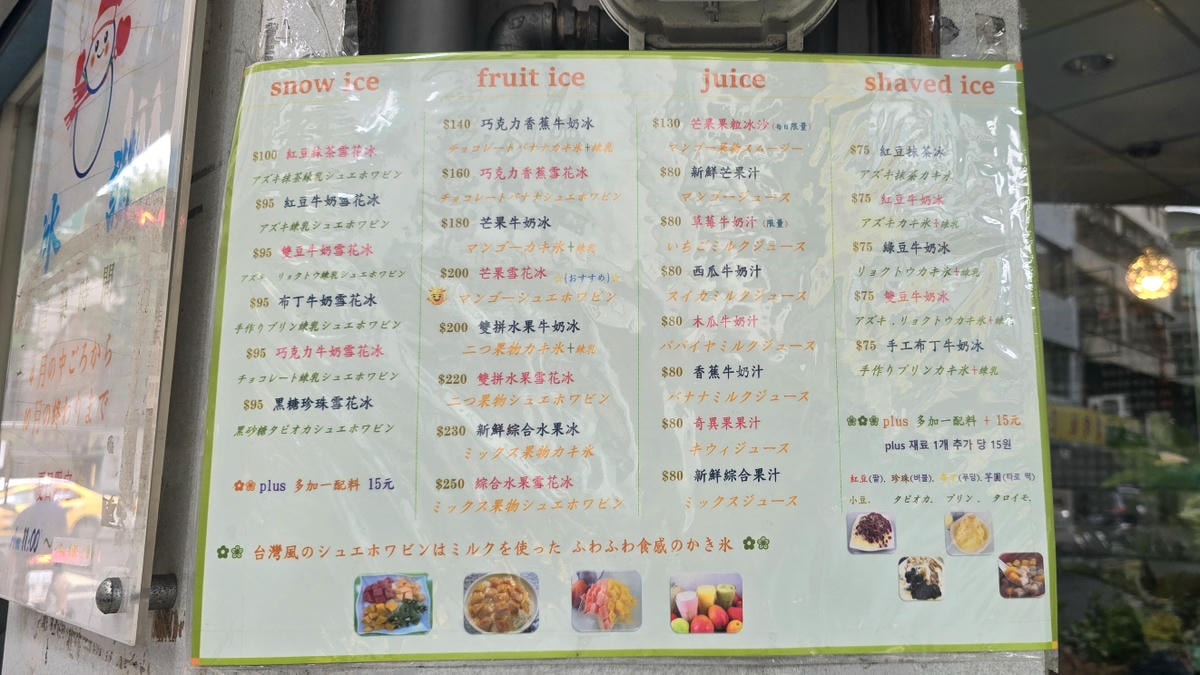 snow ice
$100 紅豆抹茶雪花冰
アズキ抹茶練乳シュエホワピン
$95 紅豆牛奶雪花冰
アズキ練乳シュエホワピン
$95 雙豆牛奶雪花冰
アズキ リョクトウ練乳シュエホワピン
$95 布丁牛奶雪花冰
手作りプリン練乳シュエホワピン
$95 巧克力牛奶雪花冰
チョコレート練乳シュエホワピン
$95 黑糖珍珠雪花冰
黒砂糖タピオカシュエホワピン
plus 多加一配料 15元
fruit ice
$140 巧克力香蕉牛奶冰
チョコレートバナナカキ氷+練乳
$160 巧克力香蕉雪花冰
チョコレートバナナシュエホワピン
$180 芒果牛奶冰
マンゴーカキ氷+練乳
$200 芒果雪花冰 (おすすめ)
マンゴーシュエホワピン
$200 雙拼水果牛奶冰
二つ果物カキ氷+練乳
$220 雙拼水果雪花冰
二つ果物シュエホワピン
$230 新鮮綜合水果冰
ミックス果物カキ氷
$250 綜合水果雪花冰
ミックス果物シュエホワピン
juice
$130 芒果果粒冰沙(每日限量)
マンゴー果物スムージー
$80 新鮮芒果汁
マンゴージュース
$80 草莓牛奶汁(限量)
いちごミルクジュース
$80 西瓜牛奶汁
スイカミルクジュース
$80 木瓜牛奶汁
パパイヤミルクジュース
$80 香蕉牛奶汁
バナナミルクジュース
$80 奇異果果汁
キウィジュース
$80 新鮮綜合果汁
ミックスジュース
shaved ice
$75 紅豆抹茶冰
アズキ抹茶カキ氷
$75 紅豆牛奶冰
アズキカキ氷+練乳
$75 綠豆牛奶冰
リョクトウカキ氷+練乳
$75 雙豆牛奶冰
アズキ．リョクトウカキ氷+練乳
$75 手工布丁牛奶冰
手作りプリンカキ氷+練乳
plus 多加一配料 + 15元
plus 재료 1개 추가 당 15원
紅豆(팥). 珍珠(버블). 布丁(푸딩). 芋圓(타로 떡)
小豆. タピオカ. プリン. タロイモ.
台灣風のシュエホワピンはミルクを使った ふわふわ食感のかき氷
4月の中ごろから
11:00 ~